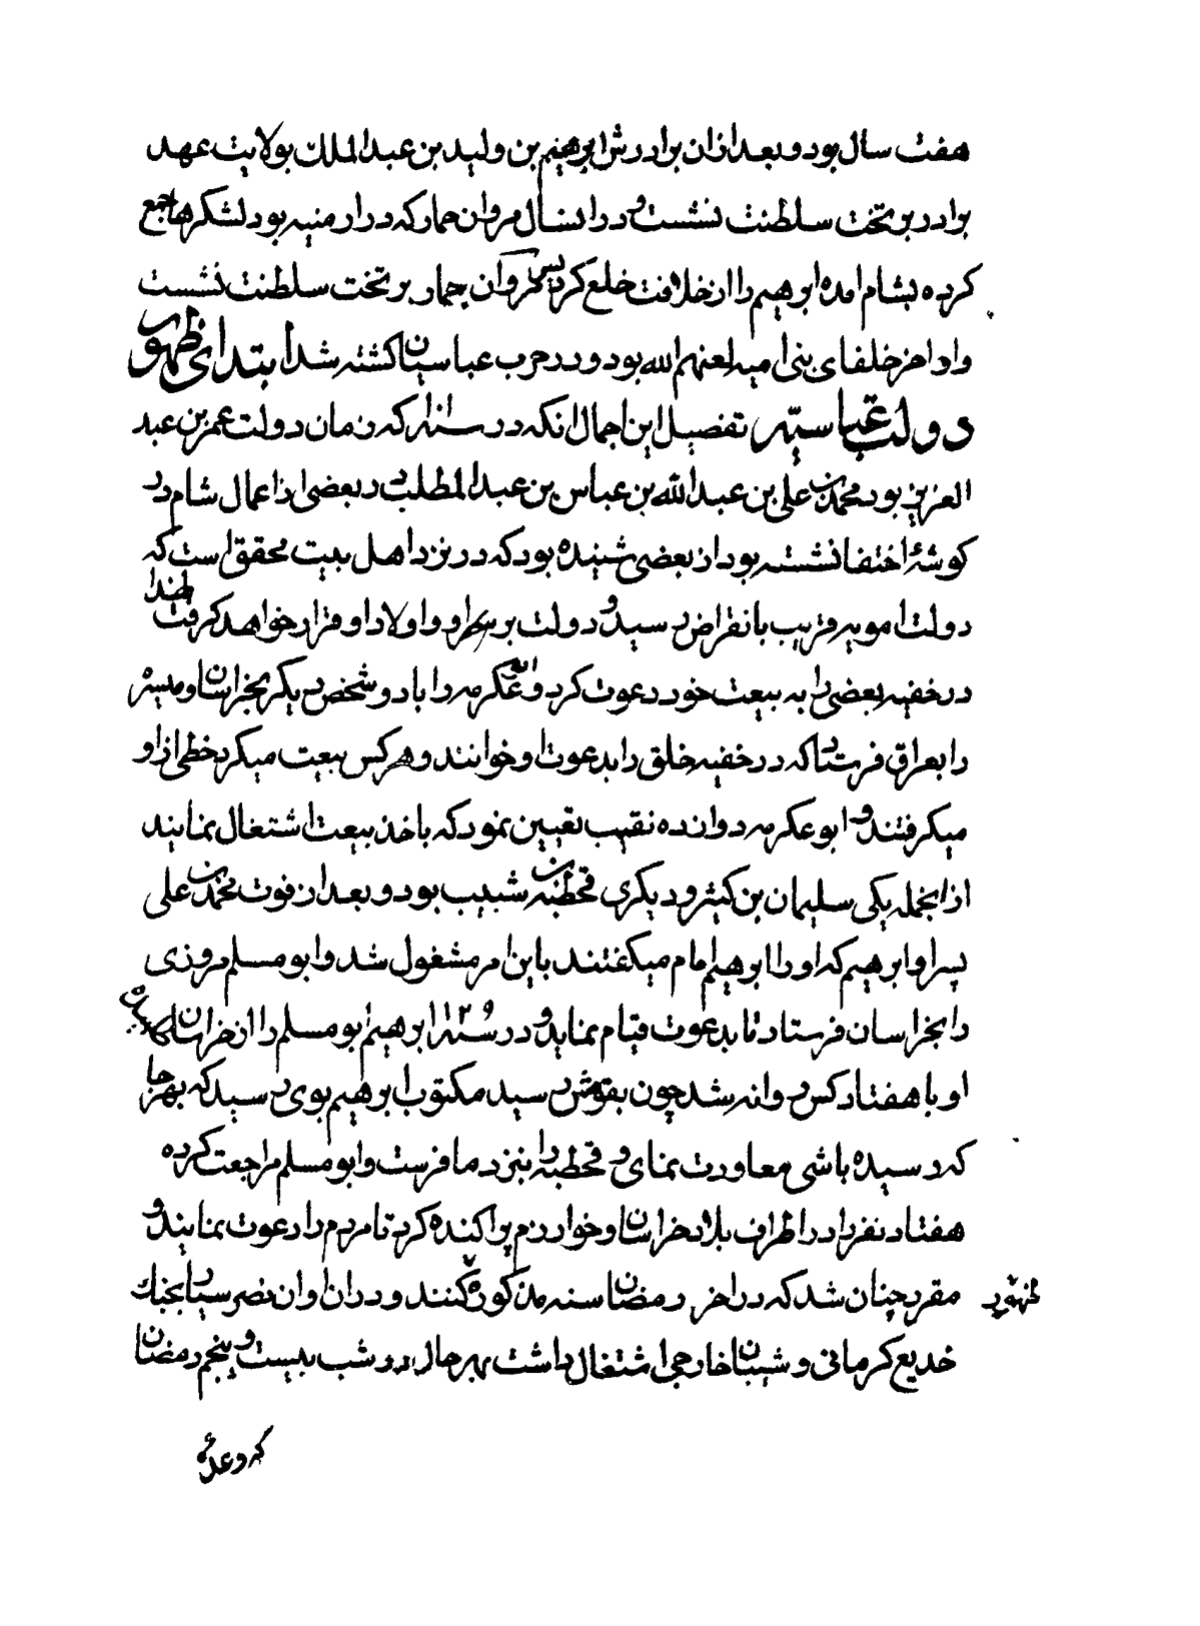 هفت سال بود و بعد ازان برادرش ابرهیم بن ولید بن عبد الملک بولایت عهد
برادر بر تخت سلطنت نشست و در انسال مروان حمار که در ارمنیه بود لشکرها جمع
کرده بشام امده ابرهیم را از خلافت خلع کرد پس مروان حمار بر تخت سلطنت نشست
و او اخر خلفای بنی امیه لعنهم الله بود و در حرب عباسیان کشته شد ابتدای ظهور
دولت عباسیه تفصیل این اجمال انکه در که زمان دولت عمر بن عبد
العزیز بود محمد بن علی بن عبد الله بن عباس بن عبد المطلب در بعضی از اعمال شام در
کوشهٔ اختفا نشسته بود از بعضی شنیده بود که در نزد اهل بیت محقق است که
دولت امویه قریب بانقراض رسید و دولت بر او و اولاد او قرار خواهد کرفت لهذا
در خفیه بعضی را به بیعت خود دعوت کرد و ابو عکرمه را با دو شخص دیکر بخراسان و میسره
را بعراق فرستاد که در خفیه خلق را بدعوت او خوانند و هر کس بیعت میکرد خطی از او
میکرفتند و ابو عکرمه دوازده نقیب تعیین نمود که باخذ بیعت اشتغال نمایند
از انجمله یکی سلیمان بن کثیر و دیکری قحطبه بن شبیب بود و بعد از فوت محمد بن علی
پسر او ابرهیم که او را ابرهیم امام میکفتند باین امر مشغول شد و ابو مسلم مروزی
را بخراسان فرستاد تا بدعوت قیام نماید و در سنه ۱۲۹ ابرهیم ابو مسلم را از خراسان
او با هفتاد کس روانه شد چون بقومش رسید مکتوب ابرهیم بوی رسید که بهر جا
که رسیده باشی معاودت نمای و قحطبه را بنزد ما فرست و ابو مسلم مراجعت کرده
هفتاد نفر را در اطراف بلاد خراسان و خوارزم پراکنده کرد تا مردم را دعوت نمایند و
مقرر چنان شد که در اخر رمضان سنه مذکوره کنند و دران اوان نصر سیار بجنک
ظهور
خدیع کرمانی و شیبان خارجی اشتغال داشت بهر حال در شب بیست و پنجم رمضان
که وعده